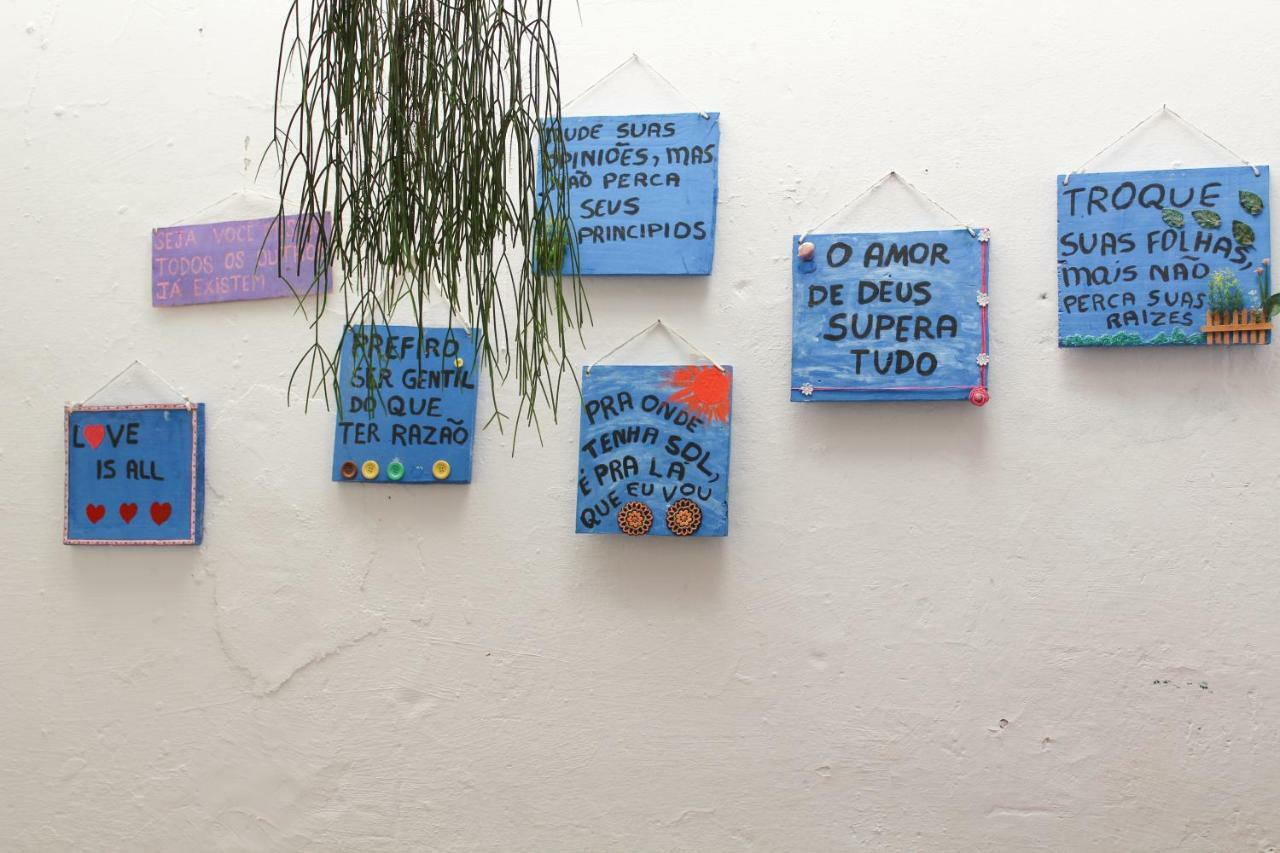 SEJA VOCÊ
TODOS OS OUTROS
JÁ EXISTEM
LOVE
IS ALL
PREFIRO
SER GENTIL
DO QUE
TER RAZÃO
MUDE SUAS
OPINIÕES, MAS
NÃO PERCA
SEUS
PRINCIPIOS
PRA ONDE
TENHA SOL,
É PRA LÁ
QUE EU VOU
O AMOR
DE DEUS
SUPERA
TUDO
TROQUE
SUAS FOLHAS,
MAIS NÃO
PERCA SUAS
RAIZES